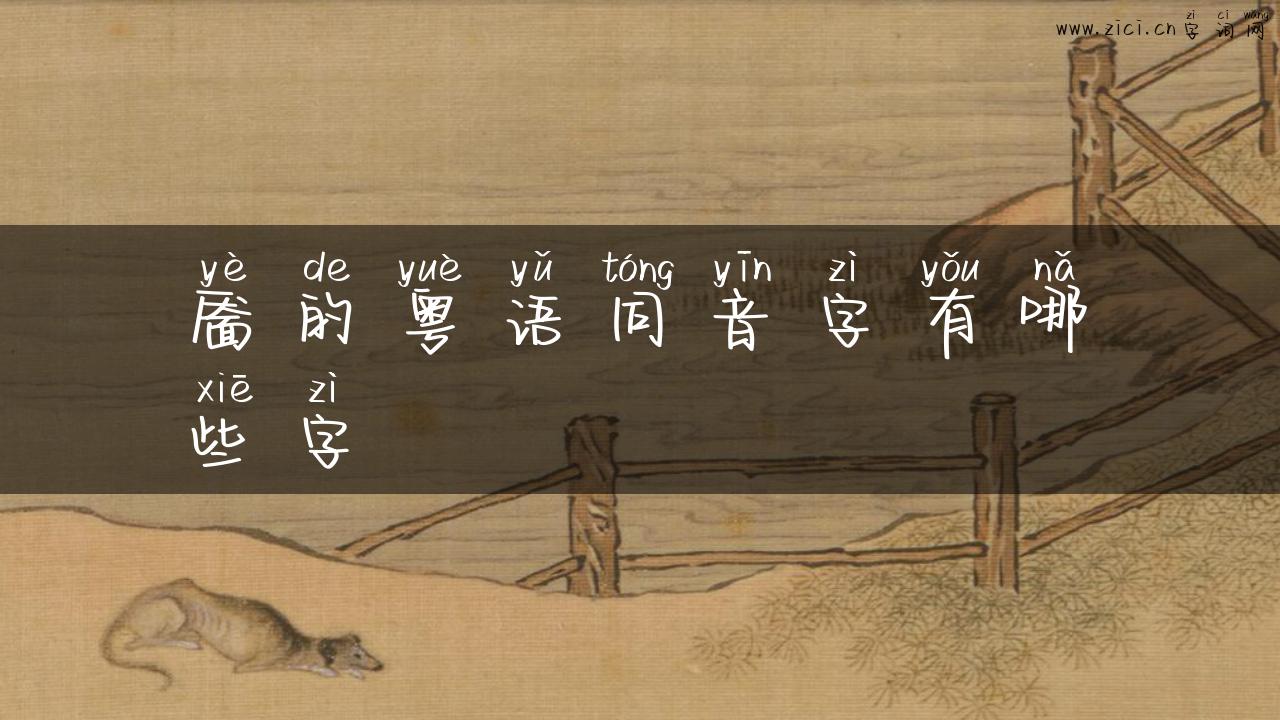 zì cí wǎng
www.zici.cn字词网
yè de yuè yǔ tóng yīn zì yǒu nǎ
靥的粤语同音字有哪
xiē zì
些字